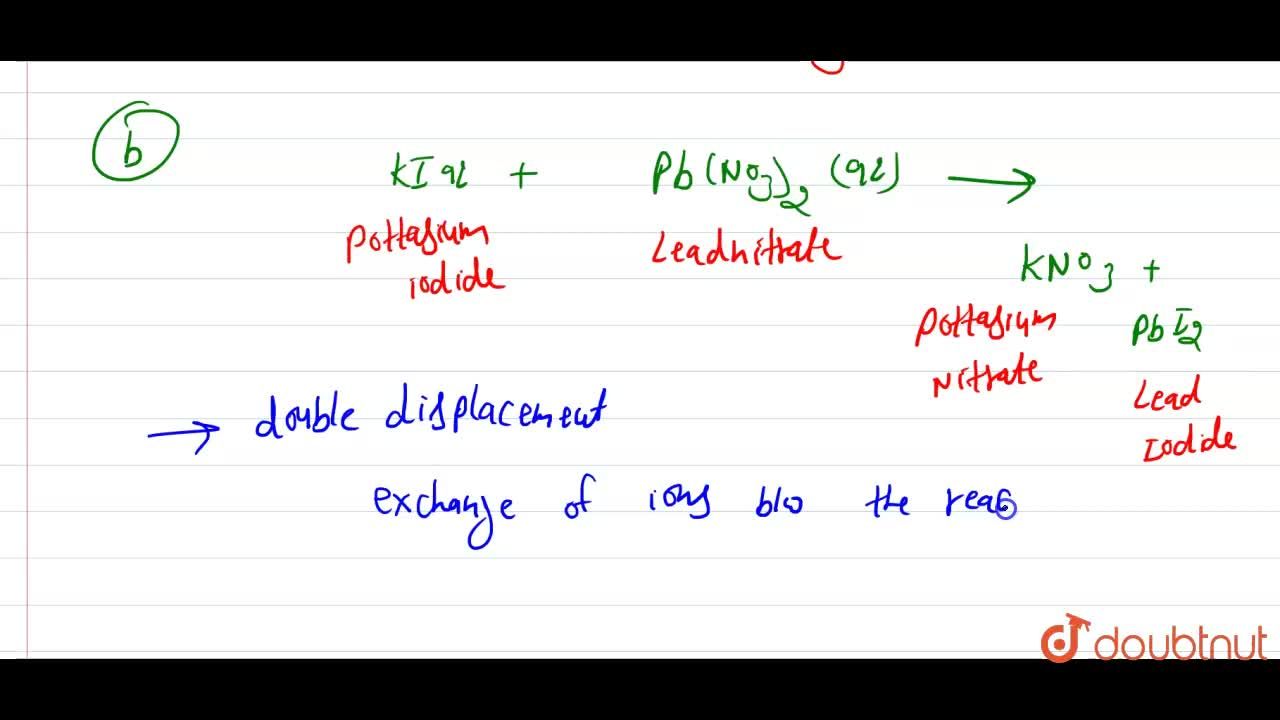 b
KI aq + Pb(NO3)2 (aq) →
Pottasium iodide
Leadnitrate
KNO3 +
PbI2
Pottasium Nitrate
Lead Iodide
→ double displacement
exchange of ions b/w the reac
doubtnut